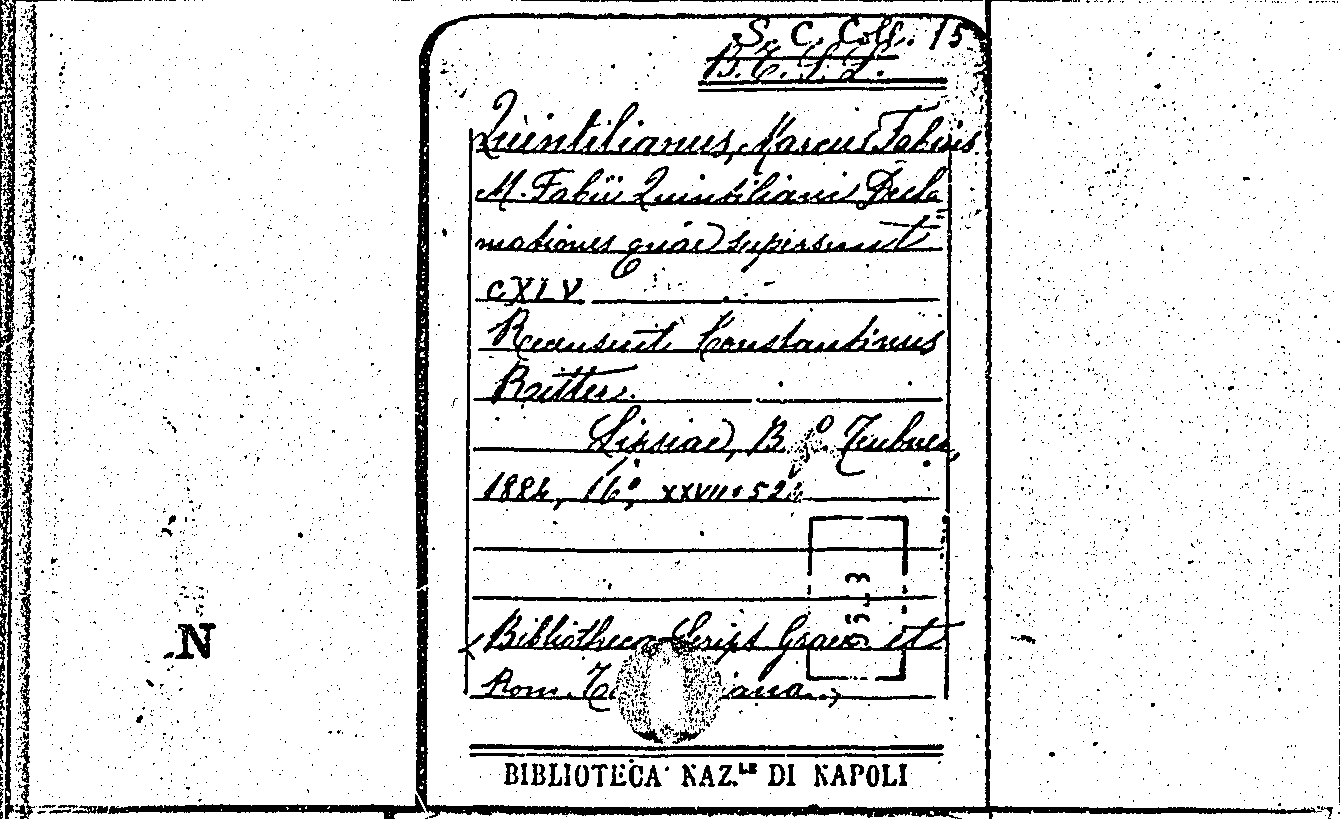 S. C. Coll. 15
B.E.S.L.
Quintilianus, Marcus Fabius
M. Fabii Quintiliani Decla=
mationes quae supersunt
CXLV
Recensuit Constantinus
Ritter.
Lipsiae, B. G. Teubner,
1884, 16°, XXVII.
Bibliotheca Script Graec et
Rom.
N
BIBLIOTECA NAZ.LE DI NAPOLI